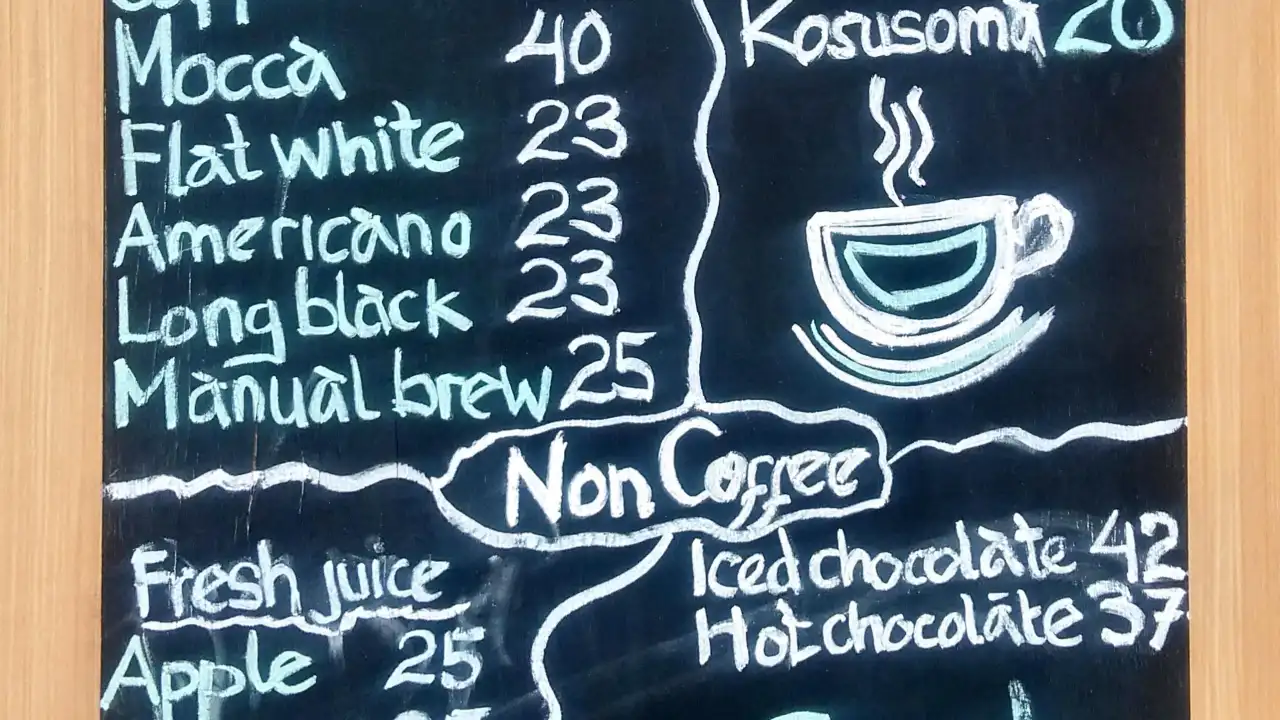 Mocca 40
Flat white 23
Americano 23
Long black 23
Manual brew 25
Kosusoma 20
Non Coffee
Fresh juice
Apple 25
Iced chocolate 42
Hot chocolate 37